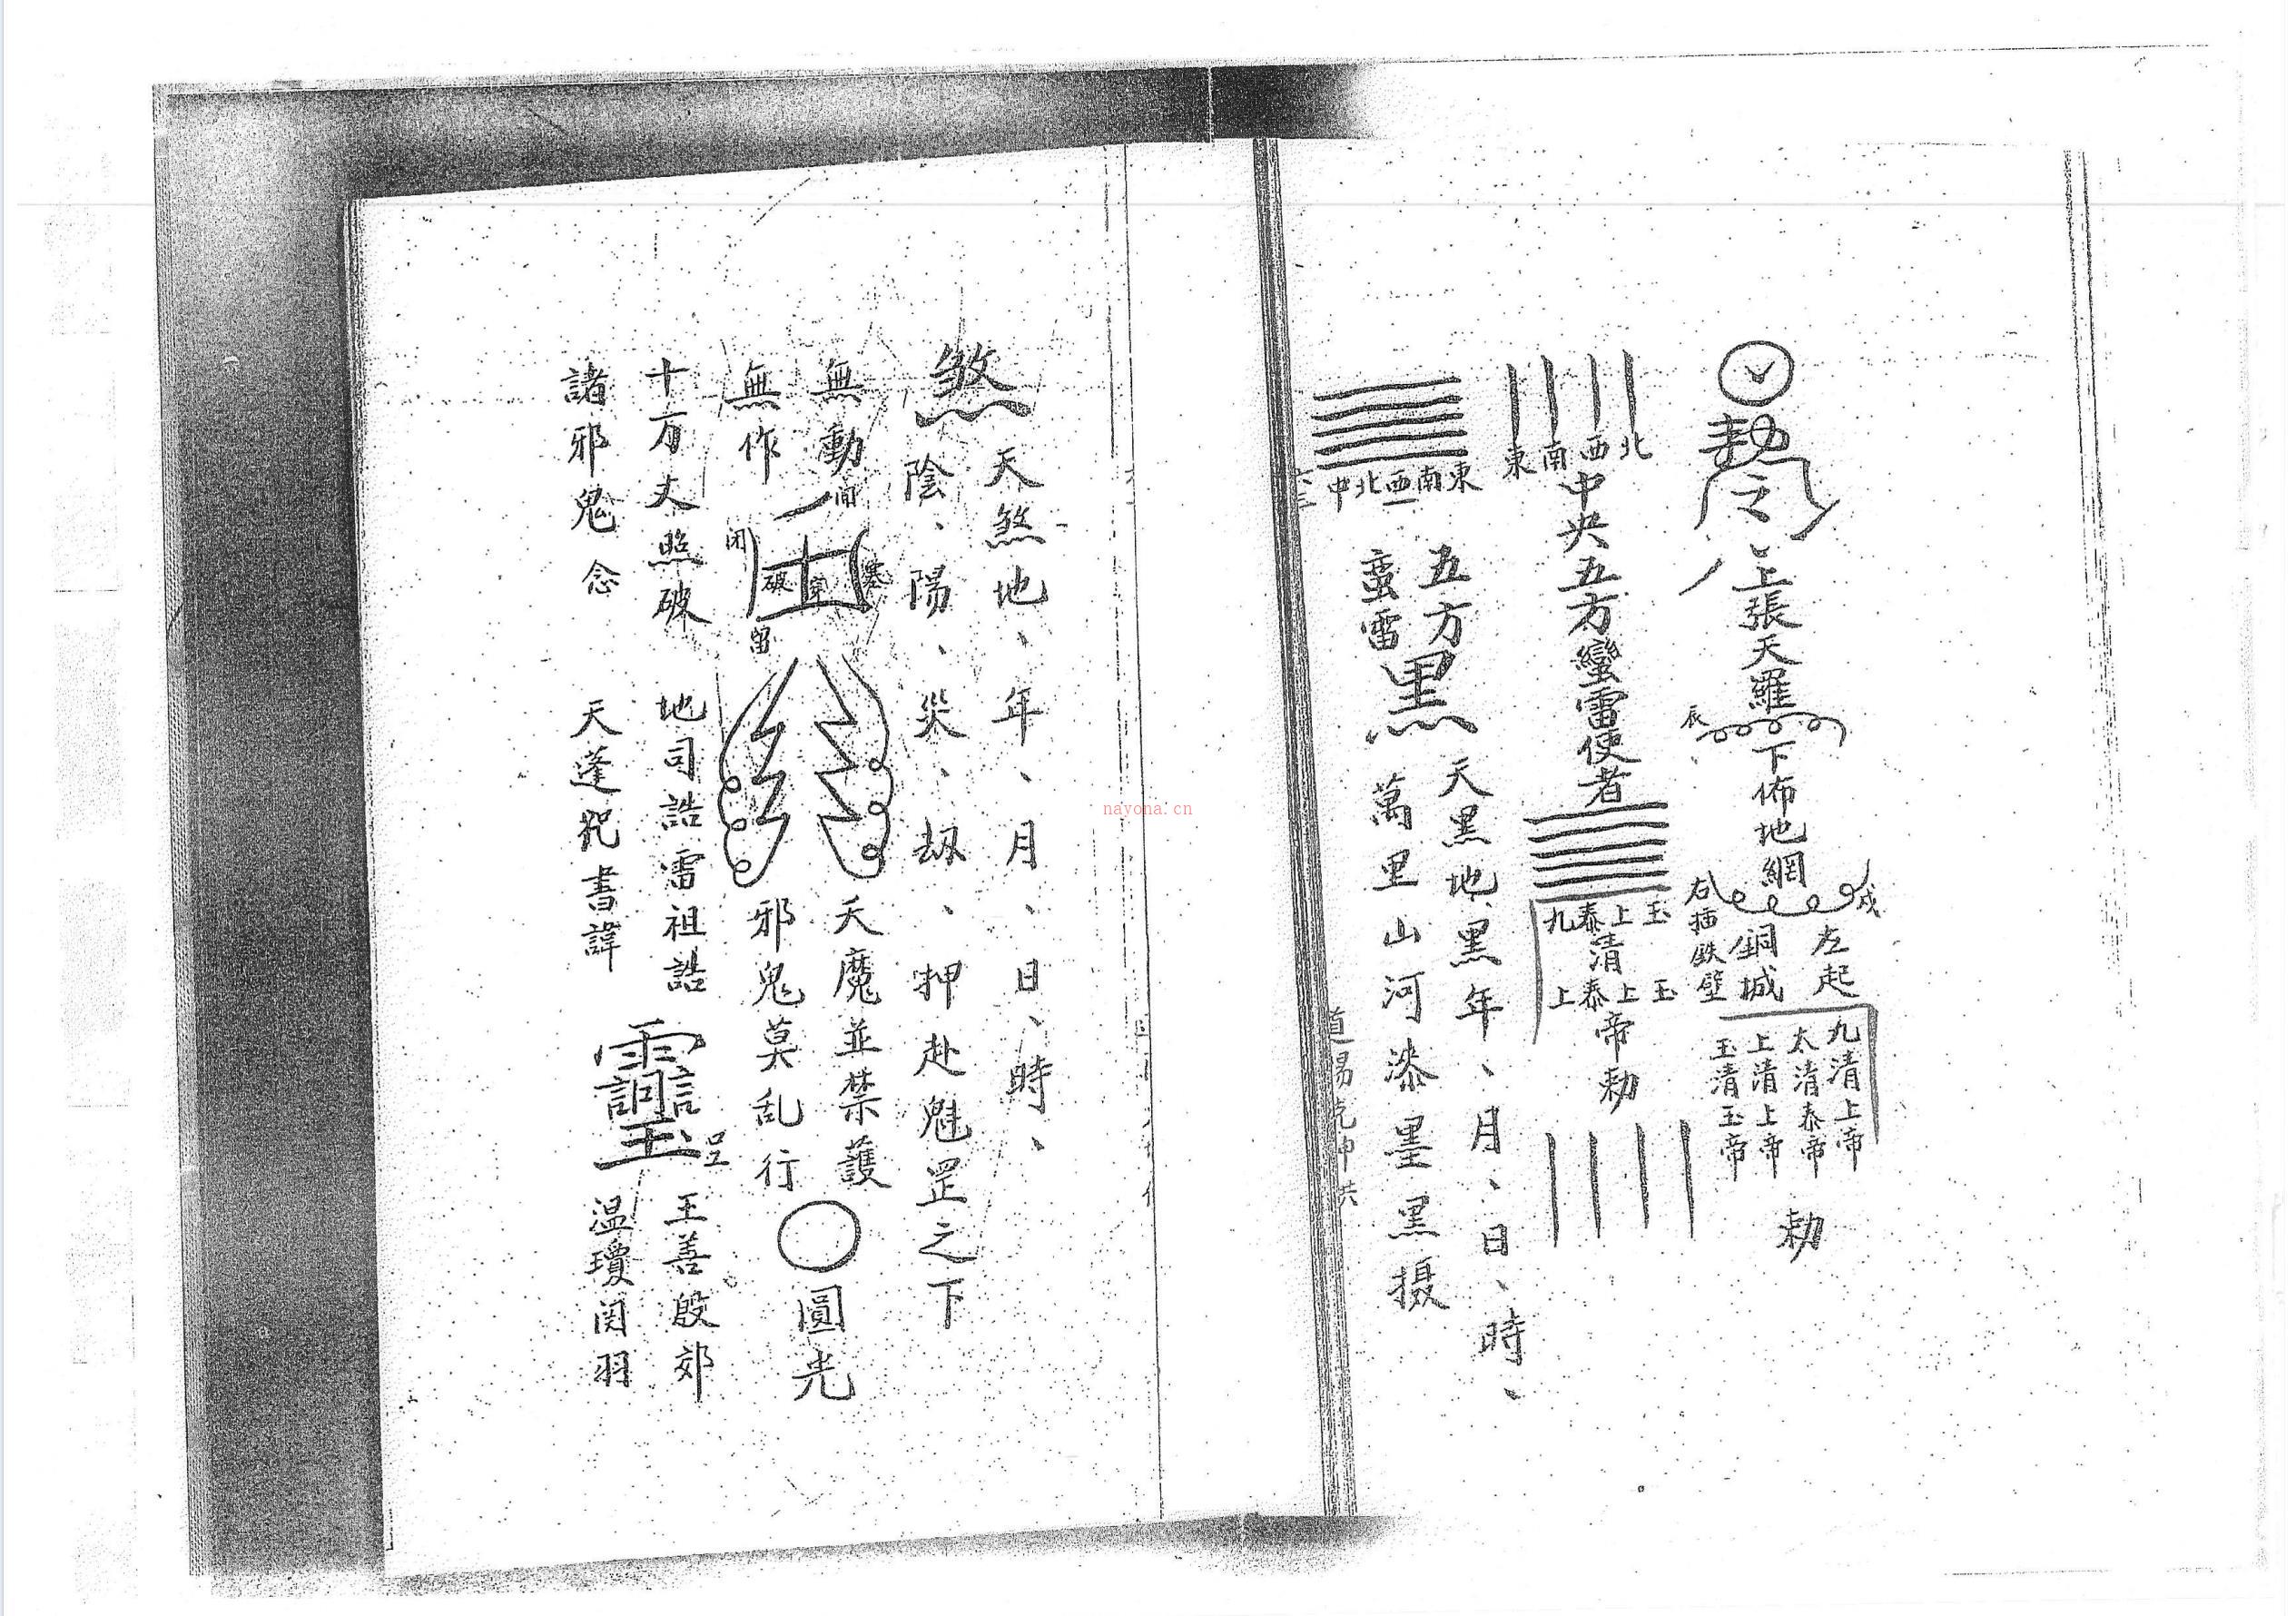 勅令
上張天羅
辰
下佈地網
戌
左起
銅城
右插鉄壁
九清上帝
太清泰帝
上清上帝
玉清玉帝
勅
東南西北
中央五方蠻雷使者
玉上泰九
清
玉上泰上
帝勅
東南西北中
五方
蛮雷
黑
天黑地、黑年、月、日、時、
萬里山河漆墨黑摄
道陽
煞
天煞地、年、月、日、時、
陰、陽、災、劫、押赴魁罡之下
無動
無作
閉
破
留
天魔並禁護
邪鬼莫乱行
圓光
十方丈照破
諸邪鬼
念
地司誥雷祖誥
天蓬咒書諱
王善殷郊
温瓊関羽
nayona.cn